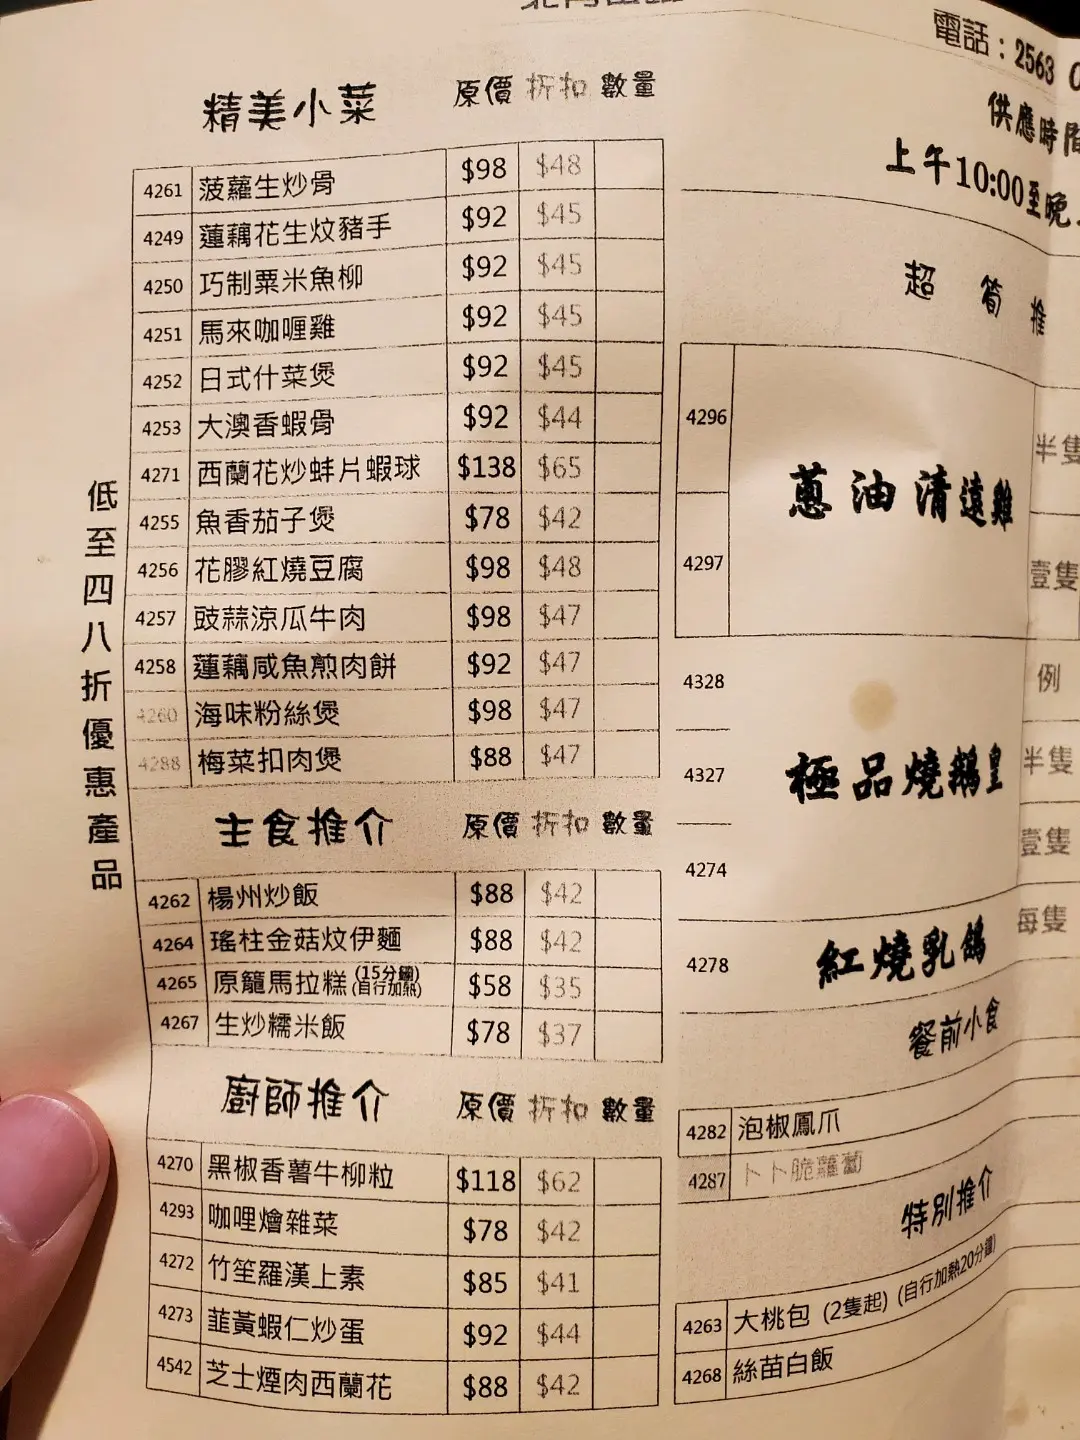 電話：2563
供應時間
上午10:00至晚
低至四八折優惠產品
精美小菜 原價 折扣 數量
4261 菠蘿生炒骨 $98 $48
4249 蓮藕花生炆豬手 $92 $45
4250 巧制粟米魚柳 $92 $45
4251 馬來咖喱雞 $92 $45
4252 日式什菜煲 $92 $45
4253 大澳香蝦骨 $92 $44
4271 西蘭花炒蚌片蝦球 $138 $65
4255 魚香茄子煲 $78 $42
4256 花膠紅燒豆腐 $98 $48
4257 豉蒜涼瓜牛肉 $98 $47
4258 蓮藕咸魚煎肉餅 $92 $47
4260 海味粉絲煲 $98 $47
4288 梅菜扣肉煲 $88 $47
主食推介 原價 折扣 數量
4262 楊州炒飯 $88 $42
4264 瑤柱金菇炆伊麵 $88 $42
4265 原籠馬拉糕 (15分鐘) (自行加熱) $58 $35
4267 生炒糯米飯 $78 $37
廚師推介 原價 折扣 數量
4270 黑椒香薯牛柳粒 $118 $62
4293 咖哩燴雜菜 $78 $42
4272 竹笙羅漢上素 $85 $41
4273 韮黃蝦仁炒蛋 $92 $44
4542 芝士煙肉西蘭花 $88 $42
超筍推
4296 半隻
蔥油清遠雞
4297 壹隻
4328 例
極品燒鵝皇
4327 半隻
4274 壹隻
4278 紅燒乳鴿 每隻
餐前小食
4282 泡椒鳳爪
4287 卜卜脆蘿蔔
特別推介
4263 大桃包 (2隻起) (自行加熱20分鐘)
4268 絲苗白飯